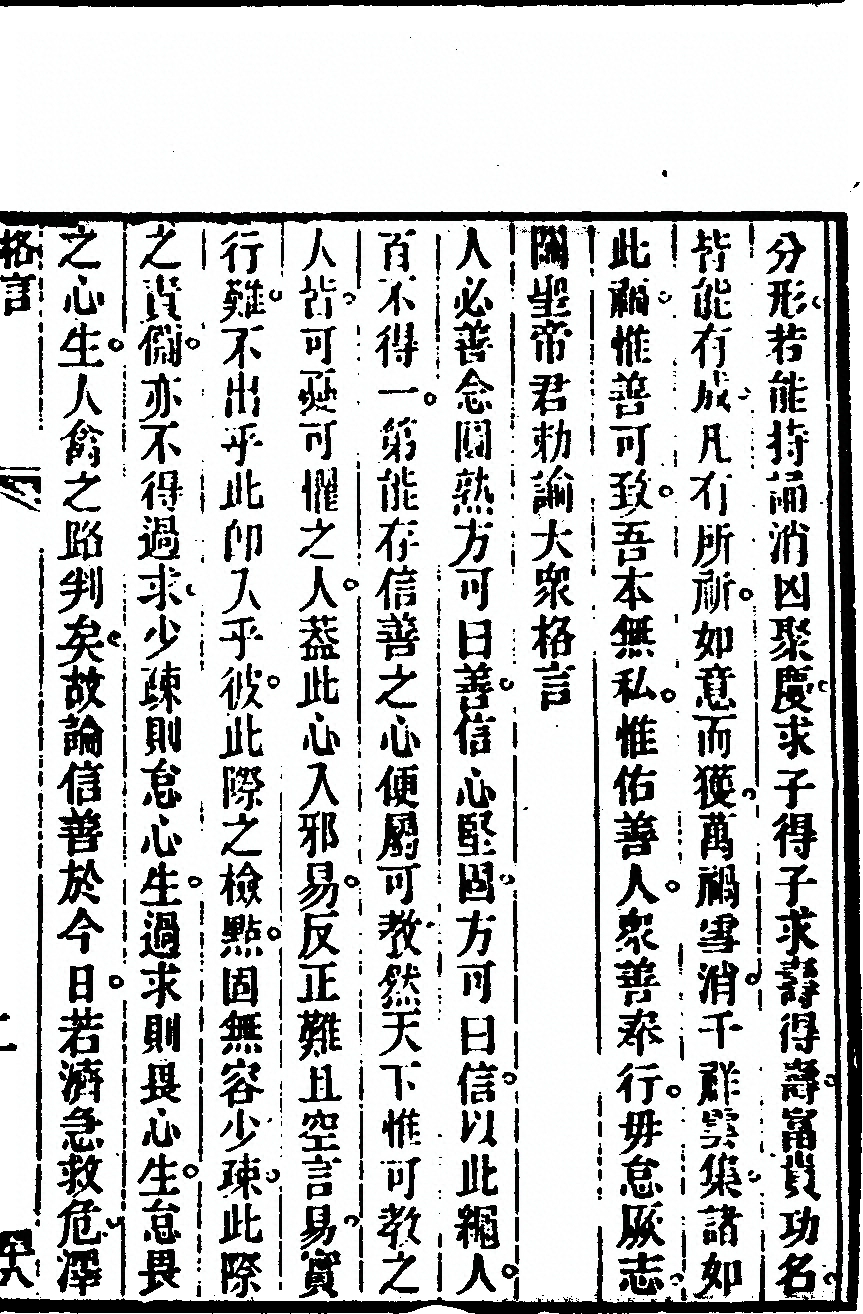 分形若能持誦消凶聚慶求子得子求壽得壽富貴功名
皆能有成凡有所祈如意而獲萬禍雪消千祥雲集諸如
此福惟善可致吾本無私惟佑善人眾善奉行毋怠厥志
關聖帝君勅諭大眾格言
人必善念圓熟方可曰善信心堅固方可曰信以此繩人
百不得一第能存信善之心便屬可教然天下惟可教之
人皆可憂可懼之人葢此心入邪易反正難且空言易實
行難不出乎此卽入乎彼此際之檢點固無容少疎此際
之責備亦不得過求少疎則怠心生過求則畏心生怠畏
之心生人禽之路判矣故論信善於今日若濟急救危澤
格言
二